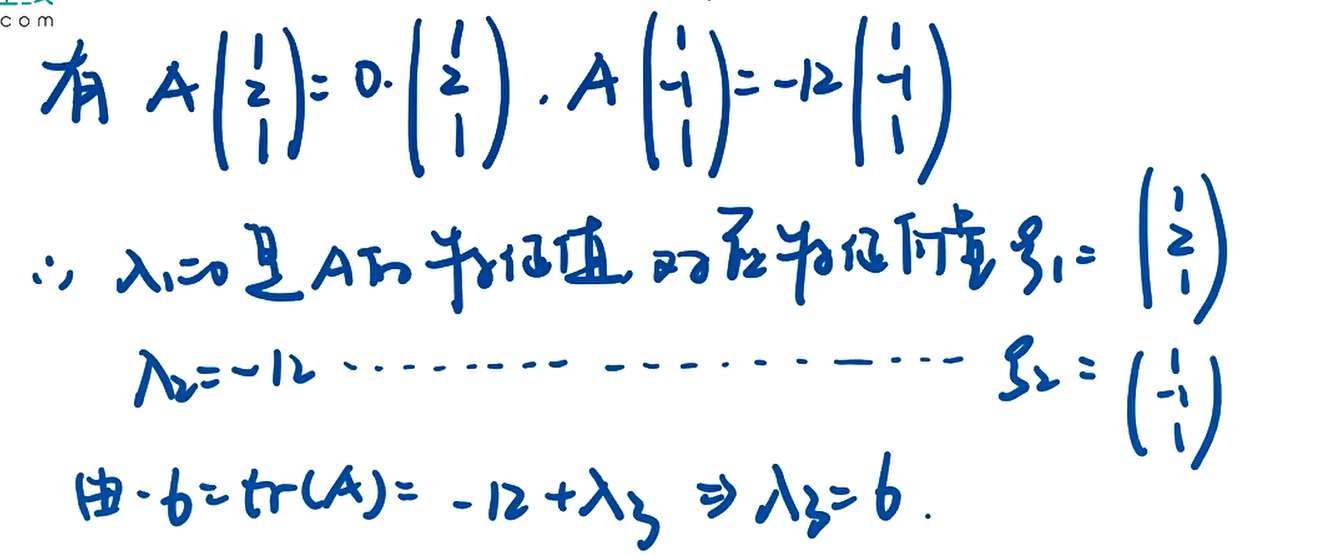 com
有 A(1 2 1) = 0·(1 2 1). A(1 -1 1) = -12(1 -1 1)
∴ λ₁=0 是 A的 特征值, 对应特征向量 ξ₁ = (1 2 1)
λ₂=-12 ·················· ξ₂ = (1 -1 1)
由 -6 = tr(A) = -12 + λ₃ ⇒ λ₃=6.